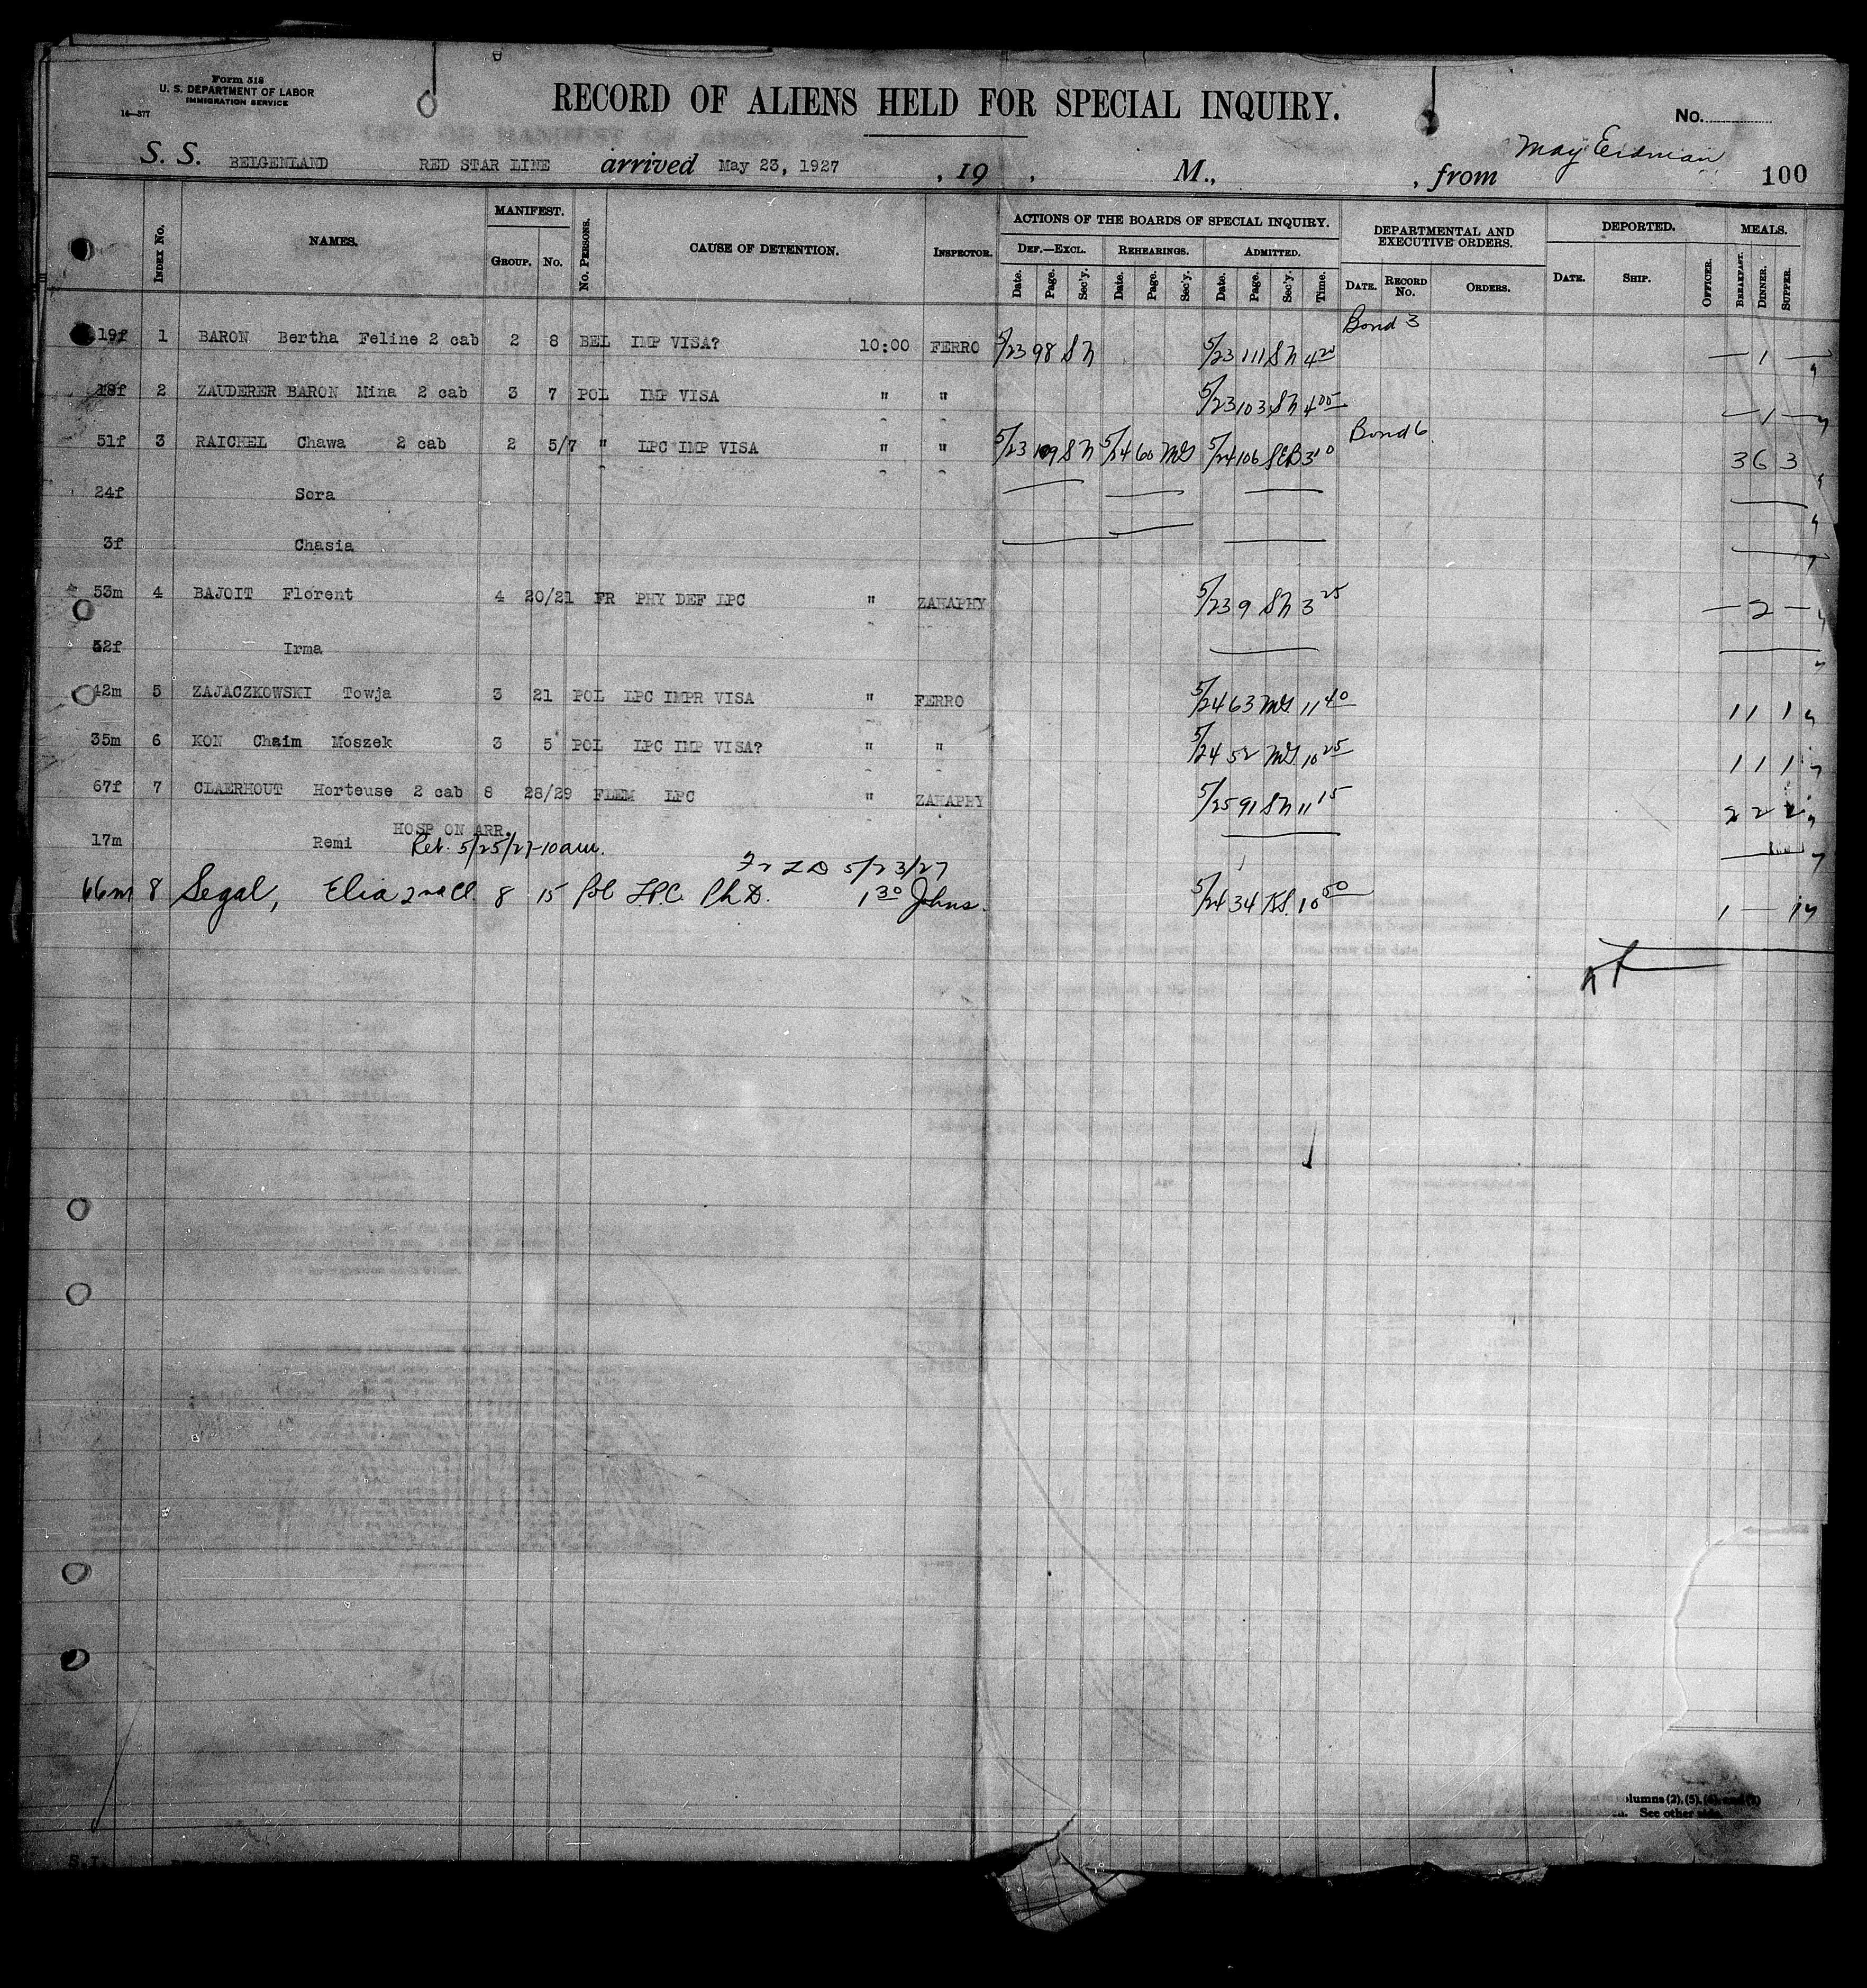 Form 518
U. S. DEPARTMENT OF LABOR
IMMIGRATION SERVICE
14—377
RECORD OF ALIENS HELD FOR SPECIAL INQUIRY.
No.
S. S. BELGENLAND RED STAR LINE arrived May 23, 1927 , 19 , M., , from May Erdman 100
Index No. NAMES. MANIFEST. Group. No. No. Persons. CAUSE OF DETENTION. Inspector. ACTIONS OF THE BOARDS OF SPECIAL INQUIRY. DEPARTMENTAL AND EXECUTIVE ORDERS. DEPORTED. MEALS.
Def.—Excl. Rehearings. Admitted.
Date. Page. Sec'y. Date. Page. Sec'y. Date. Page. Sec'y. Time. Date. Record No. Orders. Date. Ship. Officer. Breakfast. Dinner. Supper.
Bond 3
19f 1 BARON Bertha Feline 2 cab 2 8 BEL IMP VISA? 10:00 FERRO 5/23 98 SN 5/23 111 SN 4 20 — 1 —
18f 2 ZAUDERER BARON Mina 2 cab 3 7 POL IMP VISA " " 5/23 103 SN 4 05 — 1 —
Bond 6
51f 3 RAICHEL Chawa 2 cab 2 5/7 " LPC IMP VISA " " 5/23 109 SN 5/24 60 MG 5/24 106 SEB 3 10 3 6 3
24f Sora
3f Chasia
53m 4 BAJOIT Florent 4 20/21 FR PHY DEF LPC " ZAHAPHY 5/23 9 SN 3 25 — 2 —
52f Irma
42m 5 ZAJACZKOWSKI Towja 3 21 POL LPC IMPR VISA " FERRO 5/24 63 MG 11 40 1 1 1
35m 6 KON Chaim Moszek 3 5 POL LPC IMP VISA? " " 5/24 52 MG 10 25 1 1 1
67f 7 CLAERHOUT Horteuse 2 cab 8 28/29 FLEM LPC " ZAHAPHY 5/25 91 SN 11 15 2 2 2
HOSP ON ARR.
17m Remi Rel. 5/25/27-10am.
Fr I D 5/23/27
66m 8 Segal, Elia 2nd Cl. 8 15 Pol L.P.C. Ph.D. 1 30 Johns. 5/24 34 10 50 1 — 1
columns (2), (5), (6), and (7)
See other side.